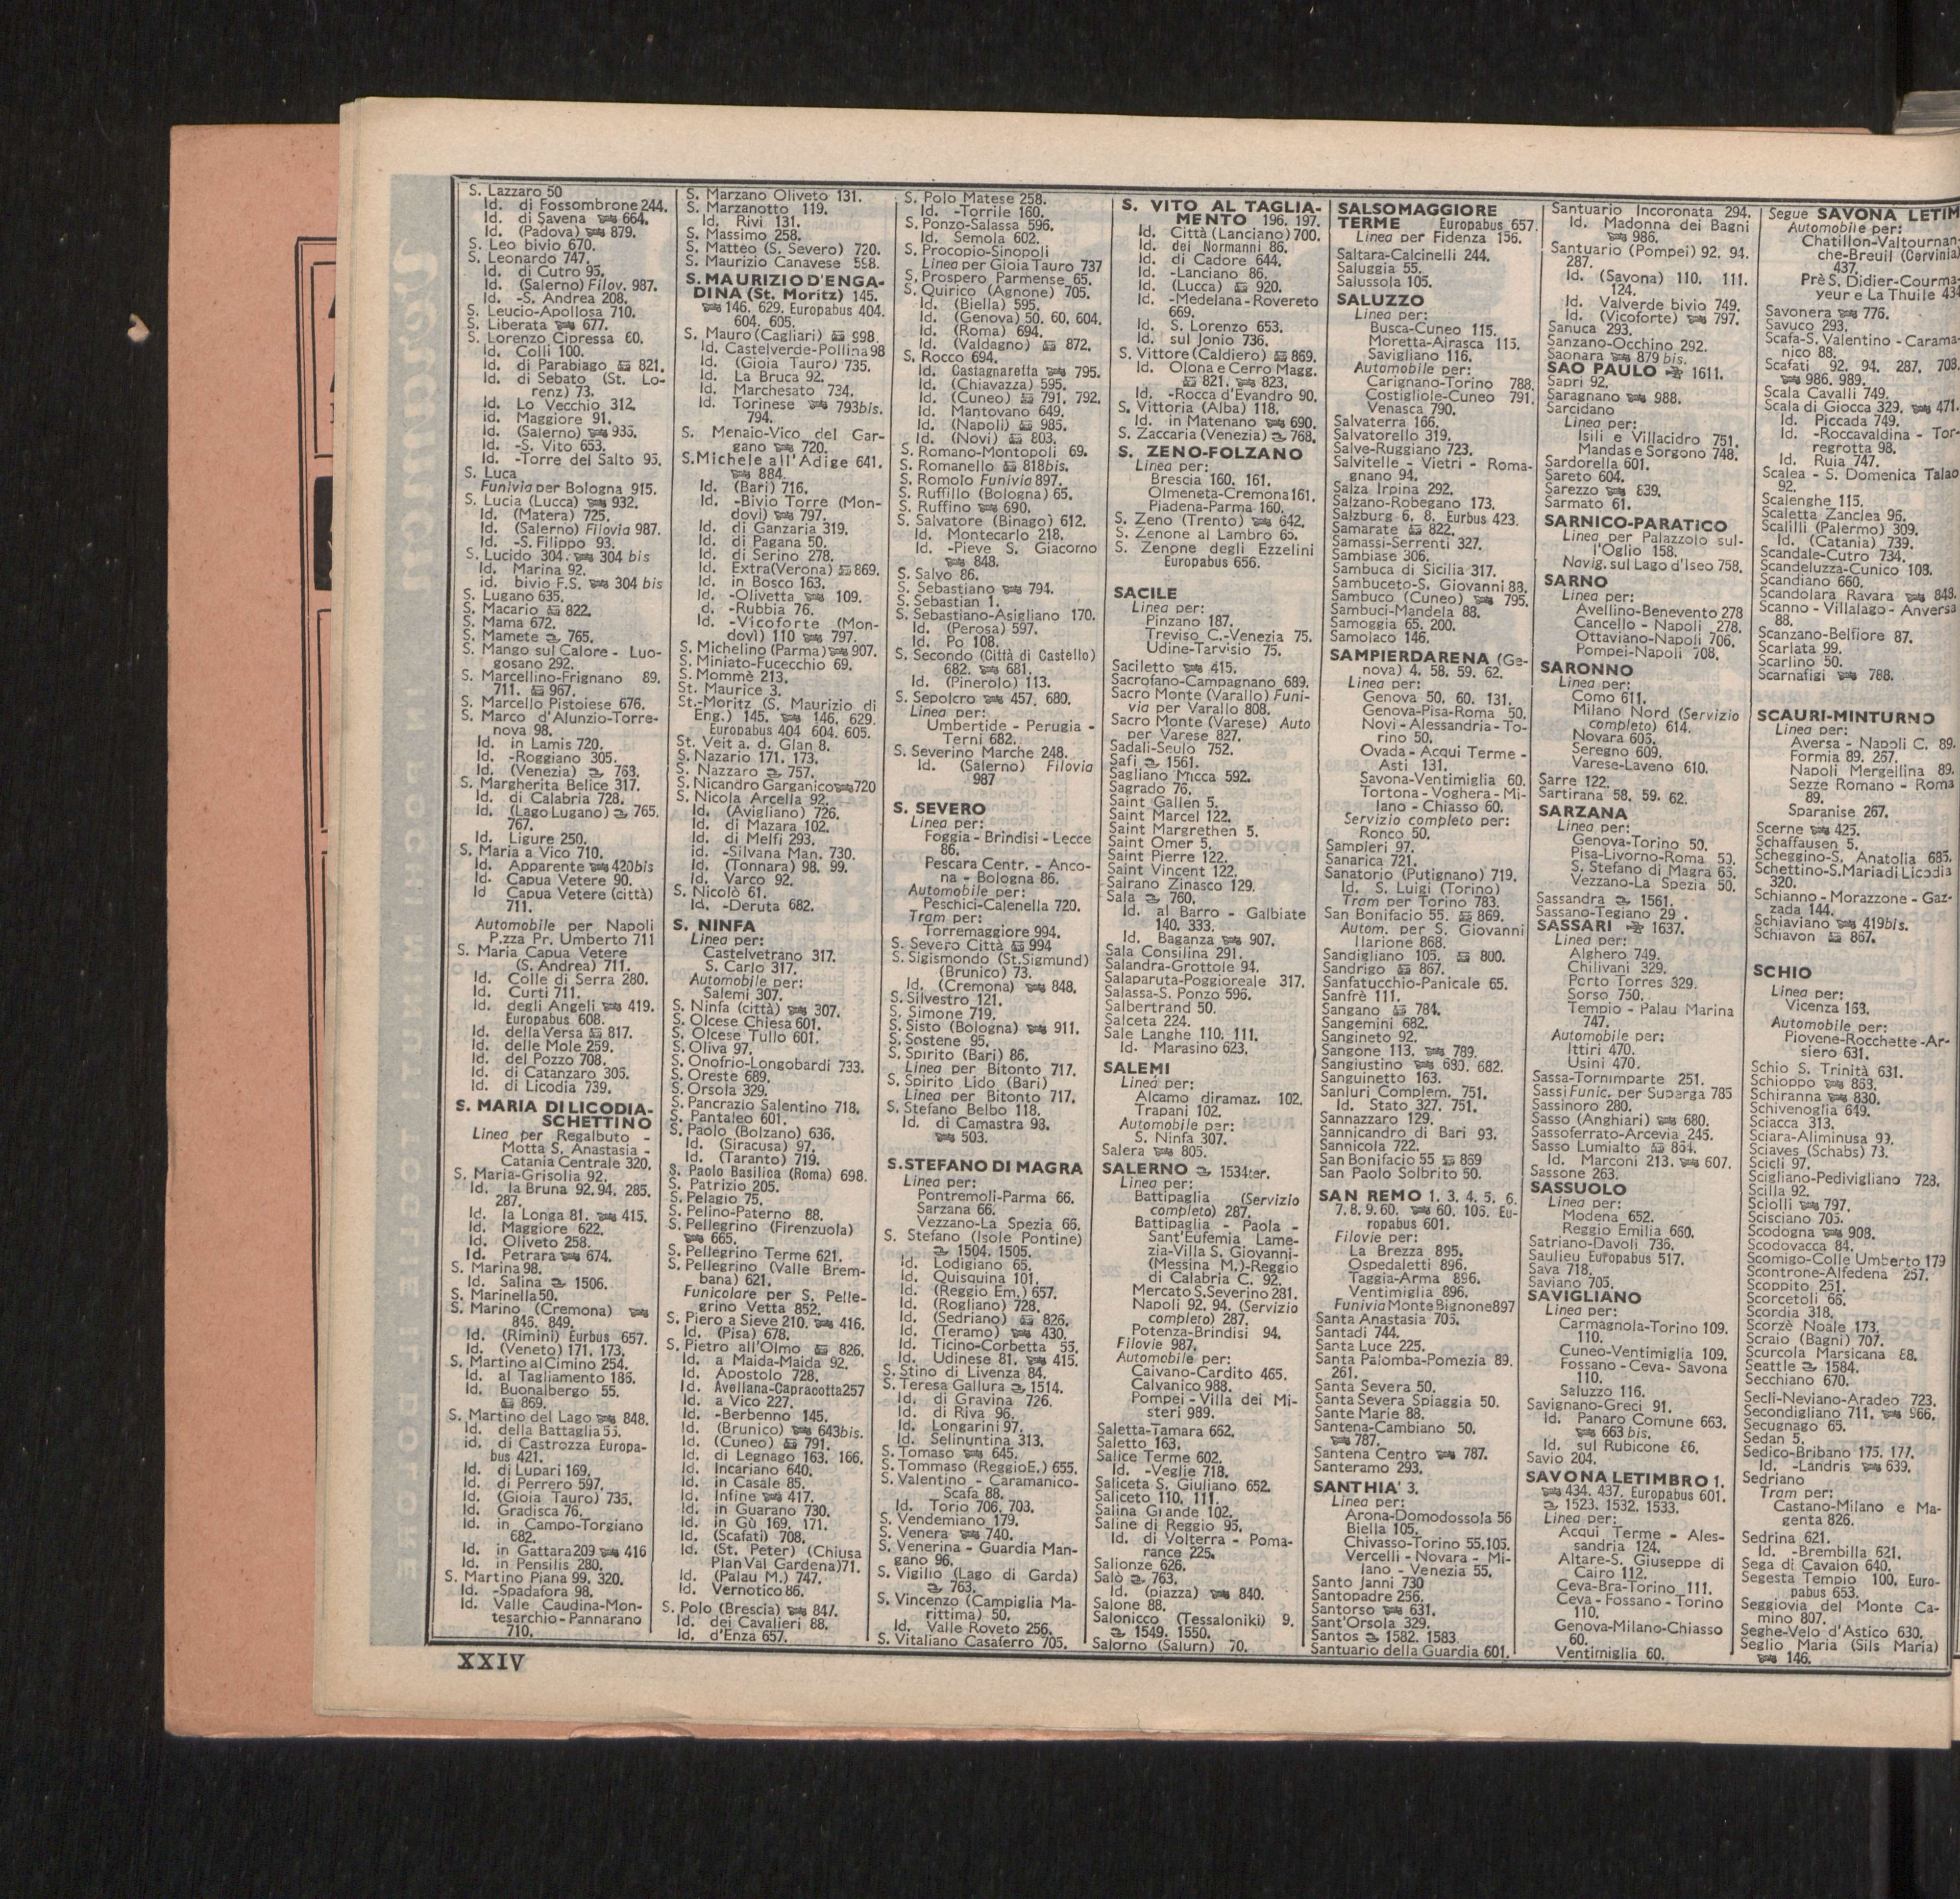 S. Lazzaro 50
Id. di Fossombrone 244.
Id. di Savena 664.
Id. (Padova) 879.
S. Leo bivio 670.
S. Leonardo 747.
Id. di Cutro 95.
Id. (Salerno) Filov. 987.
Id. -S. Andrea 208.
S. Leucio-Apollosa 710.
S. Liberata 677.
S. Lorenzo Cipressa 60.
Id. Colli 100.
Id. di Parabiago 821.
Id. di Sebato (St. Lo-
renz) 73.
Id. Lo Vecchio 312.
id. Maggiore 91.
Id. (Salerno) 935.
Id. -S. Vito 653.
Id. -Torre del Salto 95.
S. Luca
Funivia per Bologna 915.
S. Lucia (Lucca) 932.
Id. (Matera) 725.
Id. (Salerno) Filovia 987.
Id. -S. Filippo 93.
S. Lucido 304. 304 bis
Id. Marina 92.
id. bivio F.S. 304 bis
S. Lugano 635.
S. Macario 822.
S. Mama 672.
S. Mamete 765.
S. Mango sul Calore - Luo-
gosano 292.
S. Marcellino-Frignano 89.
711. 967.
S. Marcello Pistoiese 676.
S. Marco d'Alunzio-Torre-
nova 98.
Id. in Lamis 720.
Id. -Roggiano 305.
Id. (Venezia) 763.
S. Margherita Belice 317.
Id. di Calabria 728.
Id. (Lago Lugano) 765.
767.
Id. Ligure 250.
S. Maria a Vico 710.
Id. Apparente 420bis
Id. Capua Vetere 90.
Id Capua Vetere (città)
711.
Automobile per Napoli
P.zza Pr. Umberto 711
S. Maria Capua Vetere
(S. Andrea) 711.
Id. Colle di Serra 280.
Id. Curti 711.
Id. degli Angeli 419.
Europabus 608.
Id. della Versa 817.
Id. delle Mole 259.
Id. del Pozzo 708.
Id. di Catanzaro 305.
Id. di Licodia 739.
S. MARIA DI LICODIA-
SCHETTINO
Linea per Regalbuto -
Motta S. Anastasia -
Catania Centrale 320.
S. Maria-Grisolia 92.
Id. la Bruna 92. 94. 285.
287.
Id. la Longa 81. 415.
Id. Maggiore 622.
Id. Oliveto 258.
Id. Petrara 674.
S. Marina 98.
Id. Salina 1506.
S. Marinella 50.
S. Marino (Cremona)
846. 849.
Id. (Rimini) Eurbus 657.
Id. (Veneto) 171. 173.
S. Martino al Cimino 254.
Id. al Tagliamento 186.
Id. Buonalbergo 55.
869.
S. Martino del Lago 848.
Id. della Battaglia 55.
id. di Castrozza Europa-
bus 421.
Id. di Lupari 169.
Id. di Perrero 597.
Id. (Gioia Tauro) 735.
Id. Gradisca 76.
Id. in Campo-Torgiano
682.
Id. in Gattara 209 416
Id. in Pensilis 280.
S. Martino Piana 99. 320.
Id. -Spadafora 98.
Id. Valle Caudina-Mon-
tesarchio-Pannarano
710.
S. Marzano Oliveto 131.
S. Marzanotto 119.
Id. Rivi 131.
S. Massimo 258.
S. Matteo (S. Severo) 720.
S. Maurizio Canavese 598.
S. MAURIZIO D'ENGA-
DINA (St. Moritz) 145.
146. 629. Europabus 404.
604. 605.
S. Mauro (Cagliari) 998.
Id. Castelverde-Pollina 98
Id. (Gioia Tauro) 735.
Id. La Bruca 92.
Id. Marchesato 734.
Id. Torinese 793bis.
794.
S. Menaio-Vico del Gar-
gano 720.
S. Michele all'Adige 641.
884.
Id. (Bari) 716.
Id. -Bivio Torre (Mon-
dovì) 797.
Id. di Ganzaria 319.
Id. di Pagana 50.
Id. di Serino 278.
Id. Extra (Verona) 869.
Id. in Bosco 163.
Id. -Olivetta 109.
d. -Rubbia 76.
Id. -Vicoforte (Mon-
dovì) 110 797.
S. Michelino (Parma) 907.
S. Miniato-Fucecchio 69.
S. Mommè 213.
St. Maurice 3.
St.-Moritz (S. Maurizio di
Eng.) 145. 146. 629.
Europabus 404 604. 605.
St. Veit a. d. Glan 8.
S. Nazario 171. 173.
S. Nazzaro 757.
S. Nicandro Garganico 720
S. Nicola Arcella 92.
Id. (Avigliano) 726.
Id. di Mazara 102.
Id. di Melfi 293.
id. -Silvana Man. 730.
Id. (Tonnara) 98. 99.
Id. Varco 92.
S. Nicolò 61.
Id. -Deruta 682.
S. NINFA
Linea per:
Castelvetrano 317.
S. Carlo 317.
Automobile per:
Salemi 307.
S. Ninfa (città) 307.
S. Olcese Chiesa 601.
S. Olcese Tullo 601.
S. Oliva 97.
S. Onofrio-Longobardi 733.
S. Oreste 689.
S. Orsola 329.
S. Pancrazio Salentino 718.
S. Pantaleo 601.
S. Paolo (Bolzano) 636.
Id. (Siracusa) 97.
Id. (Taranto) 719.
S. Paolo Basilica (Roma) 698.
S. Patrizio 205.
S. Pelagio 75.
S. Pelino-Paterno 88.
S. Pellegrino (Firenzuola)
665.
S. Pellegrino Terme 621.
S. Pellegrino (Valle Brem-
bana) 621.
Funicolare per S. Pelle-
grino Vetta 852.
S. Piero a Sieve 210. 416.
Id. (Pisa) 678.
S. Pietro all'Olmo 826.
Id. a Maida-Maida 92.
Id. Apostolo 728.
Id. Avellana-Capracotta 257
Id. a Vico 227.
Id. -Berbenno 145.
Id. (Brunico) 643bis.
Id. (Cuneo) 791.
Id. di Legnago 163. 166.
Id. Incariano 640.
Id. in Casale 85.
Id. Infine 417.
Id. in Guarano 730.
Id. in Gù 169. 171.
Id. (Scafati) 708.
Id. (St. Peter) (Chiusa
Plan Val Gardena) 71.
Id. (Palau M.) 747.
Id. Vernotico 86.
S. Polo (Brescia) 847.
Id. dei Cavalieri 88.
Id. d'Enza 657.
S. Polo Matese 258.
Id. -Torrile 160.
S. Ponzo-Salassa 596.
Id. Semola 602.
S. Procopio-Sinopoli
Linea per Gioia Tauro 737
S. Prospero Parmense 65.
S. Quirico (Agnone) 705.
Id. (Biella) 595.
Id. (Genova) 50. 60. 604.
Id. (Roma) 694.
Id. (Valdagno) 872.
S. Rocco 694.
Id. Castagnaretta 795.
Id. (Chiavazza) 595.
Id. (Cuneo) 791. 792.
Id. Mantovano 649.
Id. (Napoli) 985.
Id. (Novi) 803.
S. Romano-Montopoli 69.
S. Romanello 818bis.
S. Romolo Funivia 897.
S. Ruffillo (Bologna) 65.
S. Ruffino 690.
S. Salvatore (Binago) 612.
Id. Montecarlo 218.
Id. -Pieve S. Giacomo
848.
S. Salvo 86.
S. Sebastiano 794.
S. Sebastian 1.
S. Sebastiano-Asigliano 170.
Id. (Perosa) 597.
Id. Po 108.
S. Secondo (Città di Castello)
682. 681.
Id. (Pinerolo) 113.
S. Sepolcro 457. 680.
Linea per:
Umbertide - Perugia -
Terni 682.
S. Severino Marche 248.
Id. (Salerno) Filovia
987
S. SEVERO
Linea per:
Foggia - Brindisi - Lecce
86.
Pescara Centr. - Anco-
na - Bologna 86.
Automobile per:
Peschici-Calenella 720.
Tram per:
Torremaggiore 994.
S. Severo Città 994
S. Sigismondo (St. Sigmund)
(Brunico) 73.
Id. (Cremona) 848.
S. Silvestro 121.
S. Simone 719.
S. Sisto (Bologna) 911.
S. Sostene 95.
S. Spirito (Bari) 86.
Linea per Bitonto 717.
S. Spirito Lido (Bari)
Linea per Bitonto 717.
S. Stefano Belbo 118.
Id. di Camastra 98.
503.
S. STEFANO DI MAGRA
Linea per:
Pontremoli-Parma 66.
Sarzana 66.
Vezzano-La Spezia 66.
S. Stefano (Isole Pontine)
1504. 1505.
Id. Lodigiano 65.
Id. Quisquina 101.
Id. (Reggio Em.) 657.
Id. (Rogliano) 728.
Id. (Sedriano) 826.
Id. (Teramo) 430.
Id. Ticino-Corbetta 55.
Id. Udinese 81. 415.
S. Stino di Livenza 84.
S. Teresa Gallura 1514.
Id. di Gravina 726.
Id. di Riva 96.
Id. Longarini 97.
Id. Selinuntina 313.
S. Tomaso 645.
S. Tommaso (Reggio E.) 655.
S. Valentino - Caramanico-
Scafa 88.
Id. Torio 706. 703.
S. Vendemiano 179.
S. Venera 740.
S. Venerina - Guardia Man-
gano 96.
S. Vigilio (Lago di Garda)
763.
S. Vincenzo (Campiglia Ma-
rittima) 50.
Id. Valle Roveto 256.
S. Vitaliano Casaferro 705.
S. VITO AL TAGLIA-
MENTO 196. 197.
Id. Città (Lanciano) 700.
Id. dei Normanni 86.
Id. di Cadore 644.
Id. -Lanciano 86.
Id. (Lucca) 920.
Id. -Medelana-Rovereto
669.
Id. S. Lorenzo 653.
Id. sul Jonio 736.
S. Vittore (Caldiero) 869.
Id. Olona e Cerro Magg.
821. 823.
Id. -Rocca d'Evandro 90.
S. Vittoria (Alba) 118.
Id. in Matenano 690.
S. Zaccaria (Venezia) 768.
S. ZENO-FOLZANO
Linea per:
Brescia 160. 161.
Olmeneta-Cremona 161.
Piadena-Parma 160.
S. Zeno (Trento) 642.
S. Zenone al Lambro 65.
S. Zenone degli Ezzelini
Europabus 656.
SACILE
Linea per:
Pinzano 187.
Treviso C.-Venezia 75.
Udine-Tarvisio 75.
Saciletto 415.
Sacrofano-Campagnano 689.
Sacro Monte (Varallo) Funi-
via per Varallo 808.
Sacro Monte (Varese) Auto
per Varese 827.
Sadali-Seulo 752.
Safi 1561.
Sagliano Micca 592.
Sagrado 76.
Saint Gallen 5.
Saint Marcel 122.
Saint Margrethen 5.
Saint Omer 5.
Saint Pierre 122.
Saint Vincent 122.
Sairano Zinasco 129.
Sala 760.
Id. al Barro - Galbiate
140. 333.
Id. Baganza 907.
Sala Consilina 291.
Salandra-Grottole 94.
Salaparuta-Poggioreale 317.
Salassa-S. Ponzo 596.
Salbertrand 50.
Salceta 224.
Sale Langhe 110. 111.
Id. Marasino 623.
SALEMI
Linea per:
Alcamo diramaz. 102.
Trapani 102.
Automobile per:
S. Ninfa 307.
Salera 805.
SALERNO 1534ter.
Linea per:
Battipaglia (Servizio
completo) 287.
Battipaglia - Paola -
Sant'Eufemia Lame-
zia-Villa S. Giovanni-
(Messina M.)-Reggio
di Calabria C. 92.
Mercato S. Severino 281.
Napoli 92. 94. (Servizio
completo) 287.
Potenza-Brindisi 94.
Filovie 987.
Automobile per:
Caivano-Cardito 465.
Calvanico 988.
Pompei - Villa dei Mi-
steri 989.
Saletta-Tamara 662.
Saletto 163.
Salice Terme 602.
Id. -Veglie 718.
Saliceta S. Giuliano 652.
Saliceto 110. 111.
Salina Grande 102.
Saline di Reggio 95.
Id. di Volterra - Poma-
rance 225.
Salionze 626.
Salò 763.
Id. (piazza) 840.
Salone 88.
Salonicco (Tessaloniki) 9.
1549. 1550.
Salorno (Salurn) 70.
SALSOMAGGIORE
TERME Europabus 657.
Linea per Fidenza 156.
Saltara-Calcinelli 244.
Saluggia 55.
Salussola 105.
SALUZZO
Linea per:
Busca-Cuneo 115.
Moretta-Airasca 115.
Savigliano 116.
Automobile per:
Carignano-Torino 788.
Costigliole-Cuneo 791.
Venasca 790.
Salvaterra 166.
Salvatorello 319.
Salve-Ruggiano 723.
Salvitelle - Vietri - Roma-
gnano 94.
Salza Irpina 292.
Salzano-Robegano 173.
Salzburg 6. 8. Eurbus 423.
Samarate 822.
Samassi-Serrenti 327.
Sambiase 306.
Sambuca di Sicilia 317.
Sambuceto-S. Giovanni 88.
Sambuco (Cuneo) 795.
Sambuci-Mandela 88.
Samoggia 65. 200.
Samolaco 146.
SAMPIERDARENA (Ge-
nova) 4. 58. 59. 62.
Linea per:
Genova 50. 60. 131.
Genova-Pisa-Roma 50.
Novi - Alessandria - To-
rino 50.
Ovada - Acqui Terme -
Asti 131.
Savona-Ventimiglia 60.
Tortona - Voghera - Mi-
lano - Chiasso 60.
Servizio completo per:
Ronco 50.
Sampieri 97.
Sanarica 721.
Sanatorio (Putignano) 719.
Id. S. Luigi (Torino)
Tram per Torino 783.
San Bonifacio 55. 869.
Autom. per S. Giovanni
Ilarione 868.
Sandigliano 105. 800.
Sandrigo 867.
Sanfatucchio-Panicale 65.
Sanfrè 111.
Sangano 784.
Sangemini 682.
Sangineto 92.
Sangone 113. 789.
Sangiustino 680. 682.
Sanguinetto 163.
Sanluri Complem. 751.
Id. Stato 327. 751.
Sannazzaro 129.
Sannicandro di Bari 93.
Sannicola 722.
San Bonifacio 55 869
San Paolo Solbrito 50.
SAN REMO 1. 3. 4. 5. 6.
7. 8. 9. 60. 60. 105. Eu-
ropabus 601.
Filovie per:
La Brezza 895.
Ospedaletti 896.
Taggia-Arma 896.
Ventimiglia 896.
Funivia Monte Bignone 897
Santa Anastasia 705.
Santadi 744.
Santa Luce 225.
Santa Palomba-Pomezia 89.
261.
Santa Severa 50.
Santa Severa Spiaggia 50.
Sante Marie 88.
Santena-Cambiano 50.
787.
Santena Centro 787.
Santeramo 293.
SANTHIA' 3.
Linea per:
Arona-Domodossola 56
Biella 105.
Chivasso-Torino 55. 105.
Vercelli - Novara - Mi-
lano - Venezia 55.
Santo Janni 730
Santopadre 256.
Santorso 631.
Sant'Orsola 329.
Santos 1582. 1583.
Santuario della Guardia 601.
Santuario Incoronata 294.
Id. Madonna dei Bagni
986.
Santuario (Pompei) 92. 94.
287.
Id. (Savona) 110. 111.
124.
Id. Valverde bivio 749.
Id. (Vicoforte) 797.
Sanuca 293.
Sanzano-Occhino 292.
Saonara 879 bis.
SAO PAULO 1611.
Sapri 92.
Saragnano 988.
Sarcidano
Linea per:
Isili e Villacidro 751.
Mandas e Sorgono 748.
Sardorella 601.
Sareto 604.
Sarezzo 839.
Sarmato 61.
SARNICO-PARATICO
Linea per Palazzolo sul-
l'Oglio 158.
Navig. sul Lago d'Iseo 758.
SARNO
Linea per:
Avellino-Benevento 278
Cancello - Napoli 278.
Ottaviano-Napoli 706.
Pompei-Napoli 708.
SARONNO
Linea per:
Como 611.
Milano Nord (Servizio
completo) 614.
Novara 606.
Seregno 609.
Varese-Laveno 610.
Sarre 122.
Sartirana 58. 59. 62.
SARZANA
Linea per:
Genova-Torino 50.
Pisa-Livorno-Roma 50.
S. Stefano di Magra 66.
Vezzano-La Spezia 50.
Sassandra 1561.
Sassano-Tegiano 29 .
SASSARI 1637.
Linea per:
Alghero 749.
Chilivani 329.
Porto Torres 329.
Sorso 750.
Tempio - Palau Marina
747.
Automobile per:
Ittiri 470.
Usini 470.
Sassa-Tornimparte 251.
Sassi Funic. per Superga 785
Sassinoro 280.
Sasso (Anghiari) 680.
Sassoferrato-Arcevia 245.
Sasso Lumialto 864.
Id. Marconi 213. 607.
Sassone 263.
SASSUOLO
Linea per:
Modena 652.
Reggio Emilia 660.
Satriano-Davoli 736.
Saulieu Europabus 517.
Sava 718.
Saviano 705.
SAVIGLIANO
Linea per:
Carmagnola-Torino 109.
110.
Cuneo-Ventimiglia 109.
Fossano - Ceva - Savona
110.
Saluzzo 116.
Savignano-Greci 91.
Id. Panaro Comune 663.
663 bis.
Id. sul Rubicone 86.
Savio 204.
SAVONA LETIMBRO 1.
434. 437. Europabus 601.
1523. 1532. 1533.
Linea per:
Acqui Terme - Ales-
sandria 124.
Altare-S. Giuseppe di
Cairo 112.
Ceva-Bra-Torino 111.
Ceva - Fossano - Torino
110.
Genova-Milano-Chiasso
60.
Ventimiglia 60.
Segue SAVONA LETIM
Automobile per:
Chatillon-Valtournan-
che-Breuil (Cervinia)
437.
Prè S. Didier-Courma-
yeur e La Thuile 434
Savonera 776.
Savuco 293.
Scafa-S. Valentino - Carama-
nico 88.
Scafati 92. 94. 287. 708.
986. 989.
Scala Cavalli 749.
Scala di Giocca 329. 471.
Id. Piccada 749.
Id. -Roccavaldina - Tor-
regrotta 98.
Id. Ruia 747.
Scalea - S. Domenica Talao
92.
Scalenghe 115.
Scaletta Zanclea 96.
Scalilli (Palermo) 309.
Id. (Catania) 739.
Scandale-Cutro 734.
Scandeluzza-Cunico 108.
Scandiano 660.
Scandolara Ravara 848.
Scanno - Villalago - Anversa
88.
Scanzano-Belfiore 87.
Scarlata 99.
Scarlino 50.
Scarnafigi 788.
SCAURI-MINTURNO
Linea per:
Aversa - Napoli C. 89.
Formia 89. 267.
Napoli Mergellina 89.
Sezze Romano - Roma
89.
Sparanise 267.
Scerne 425.
Schaffausen 5.
Scheggino-S. Anatolia 685.
Schettino-S. Maria di Licodia
320.
Schianno - Morazzone - Gaz-
zada 144.
Schiaviano 419bis.
Schiavon 867.
SCHIO
Linea per:
Vicenza 168.
Automobile per:
Piovene-Rocchette-Ar-
siero 631.
Schio S. Trinità 631.
Schioppo 863.
Schiranna 830.
Schivenoglia 649.
Sciacca 313.
Sciara-Aliminusa 99.
Sciaves (Schabs) 73.
Scicli 97.
Scigliano-Pedivigliano 728.
Scilla 92.
Sciolli 797.
Scisciano 705.
Scodogna 908.
Scodovacca 84.
Scomigo-Colle Umberto 179
Scontrone-Alfedena 257.
Scoppito 251.
Scorcetoli 66.
Scordia 318.
Scorzè Noale 173.
Scraio (Bagni) 707.
Scurcola Marsicana 88.
Seattle 1584.
Secchiano 670.
Seclì-Neviano-Aradeo 723.
Secondigliano 711. 966.
Secugnago 65.
Sedan 5.
Sedico-Bribano 175. 177.
Id. -Landris 639.
Sedriano
Tram per:
Castano-Milano e Ma-
genta 826.
Sedrina 621.
Id. -Brembilla 621.
Sega di Cavaion 640.
Segesta Tempio 100. Euro-
pabus 653.
Seggiovia del Monte Ca-
mino 807.
Seghe-Velo d'Astico 630.
Seglio Maria (Sils Maria)
146.
XXIV